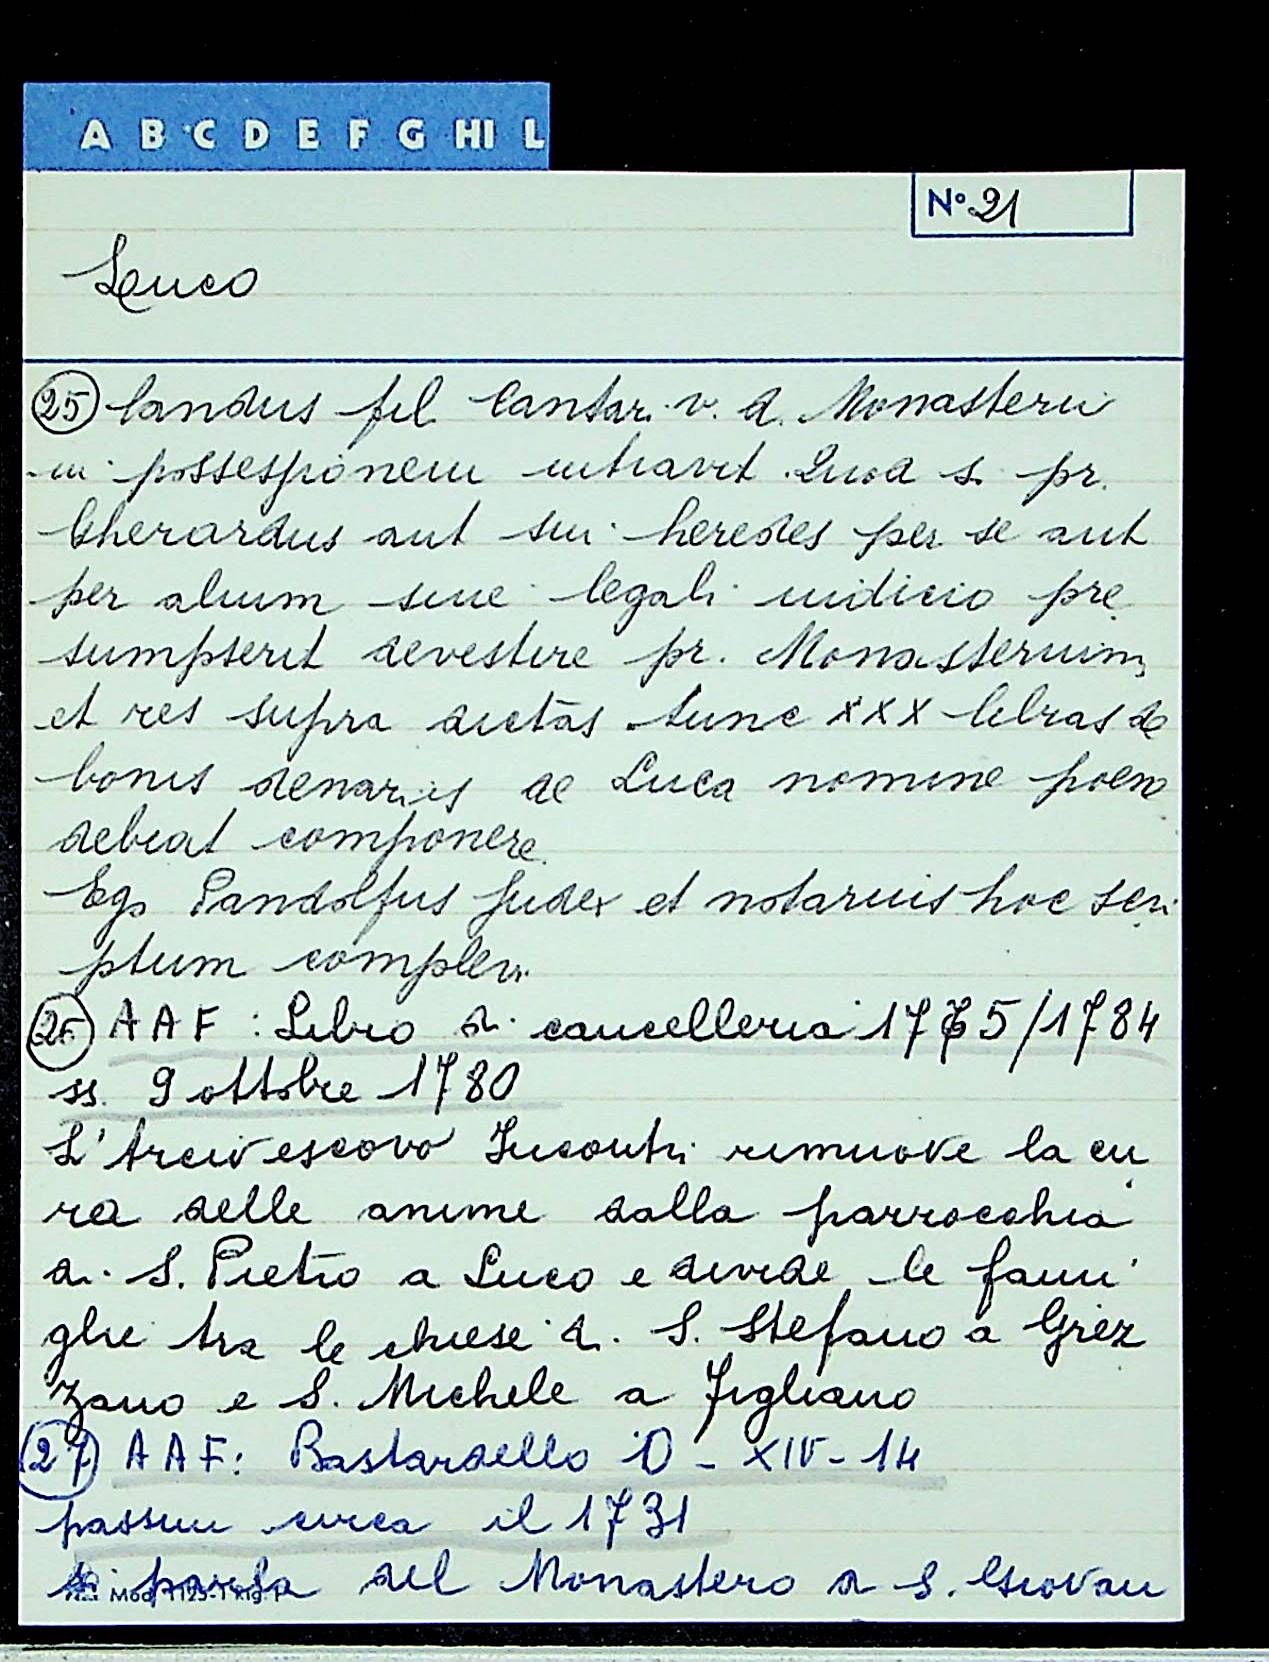 A B C D E F G HI L
N° 21
Luco
25 landus fil. Cantari v. d. Monasterii
in possessionem intravit. Quod s. pr.
Gherardus aut sui heredes per se aut
per alium sine legali iudicio pre
sumpserit devestire pr. Monasterium,
et res supra dictas tunc XXX libras de
bonis denariis de Luca nomine pene
debeat componere.
Ego Pandolfus Judex et notarius hoc scri
ptum complevi.
26 AAF: Libro di cancelleria 1775/1784
ss. 9 ottobre 1780
L'Arcivescovo Incontri rimuove la cu
ra delle anime dalla parrocchia
di S. Pietro a Luco e divide le fami
glie tra le chiese di S. Stefano a Grez
zano e S. Michele a Figliano
27 AAF: Bastardello D - XIV - 14
passim circa il 1731
si parla del Monastero di S. Giovan